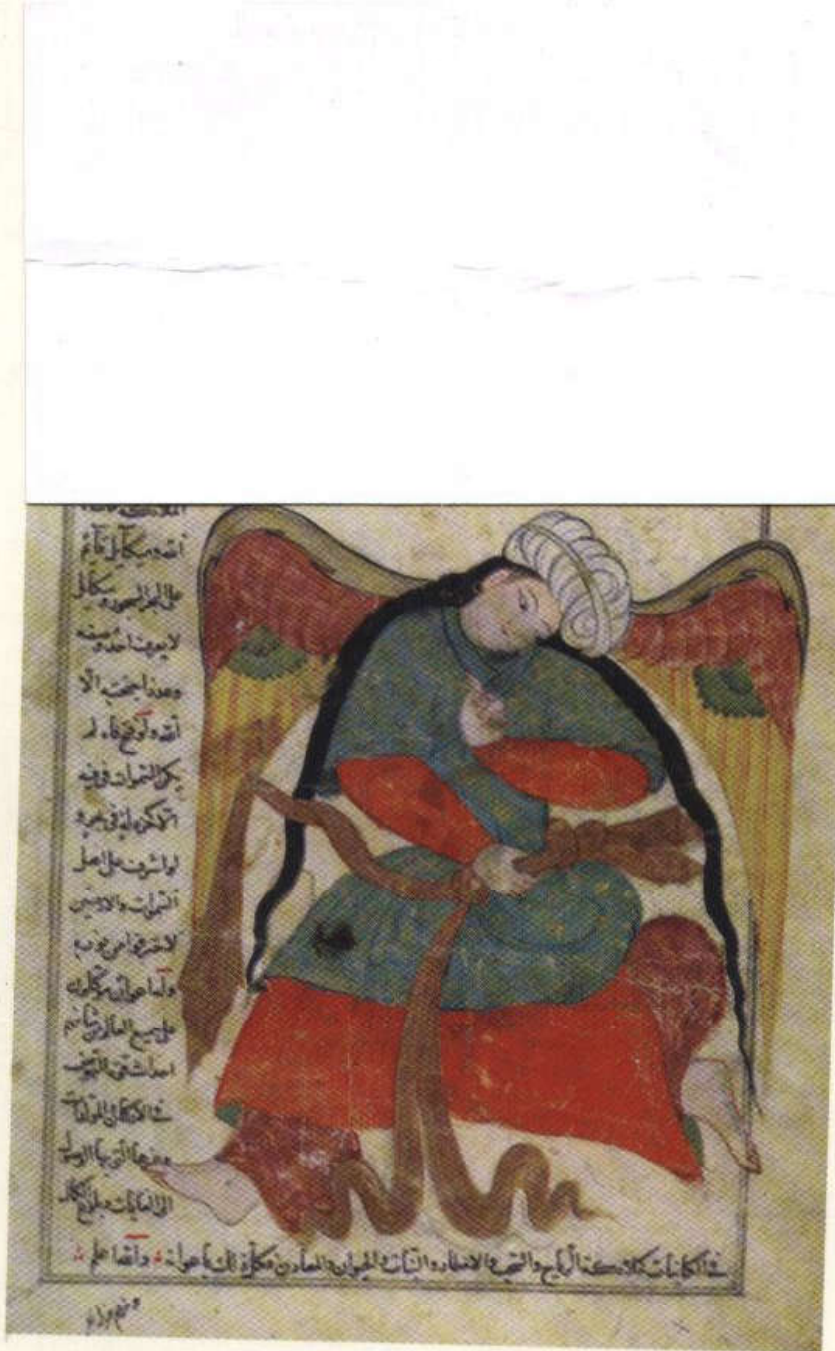 الله وميكائيل قائم
على البحر المسجور وميكائيل
لا يعرف احد وصفه
وعدد اجنحته الا
الله ولو فتح فاه لم
يكن السموات في فيه
الا كخردلة في بحر و
لو اشرف على اهل
السموات والارضين
لاحترقوا من نوره
واما اعوانه موكلون
على جميع العالم من شانهم
احداث قوى النهوض
في الاركان والمولدات
وغيرها التي بها الوصول
الى الغايات وبلوغ الكمال
في الكاينات كملائكة الرياح والسحب والامطار والنبات والحيوان والمعادن وكل ذلك باعوانه والله اعلم
ومنهم